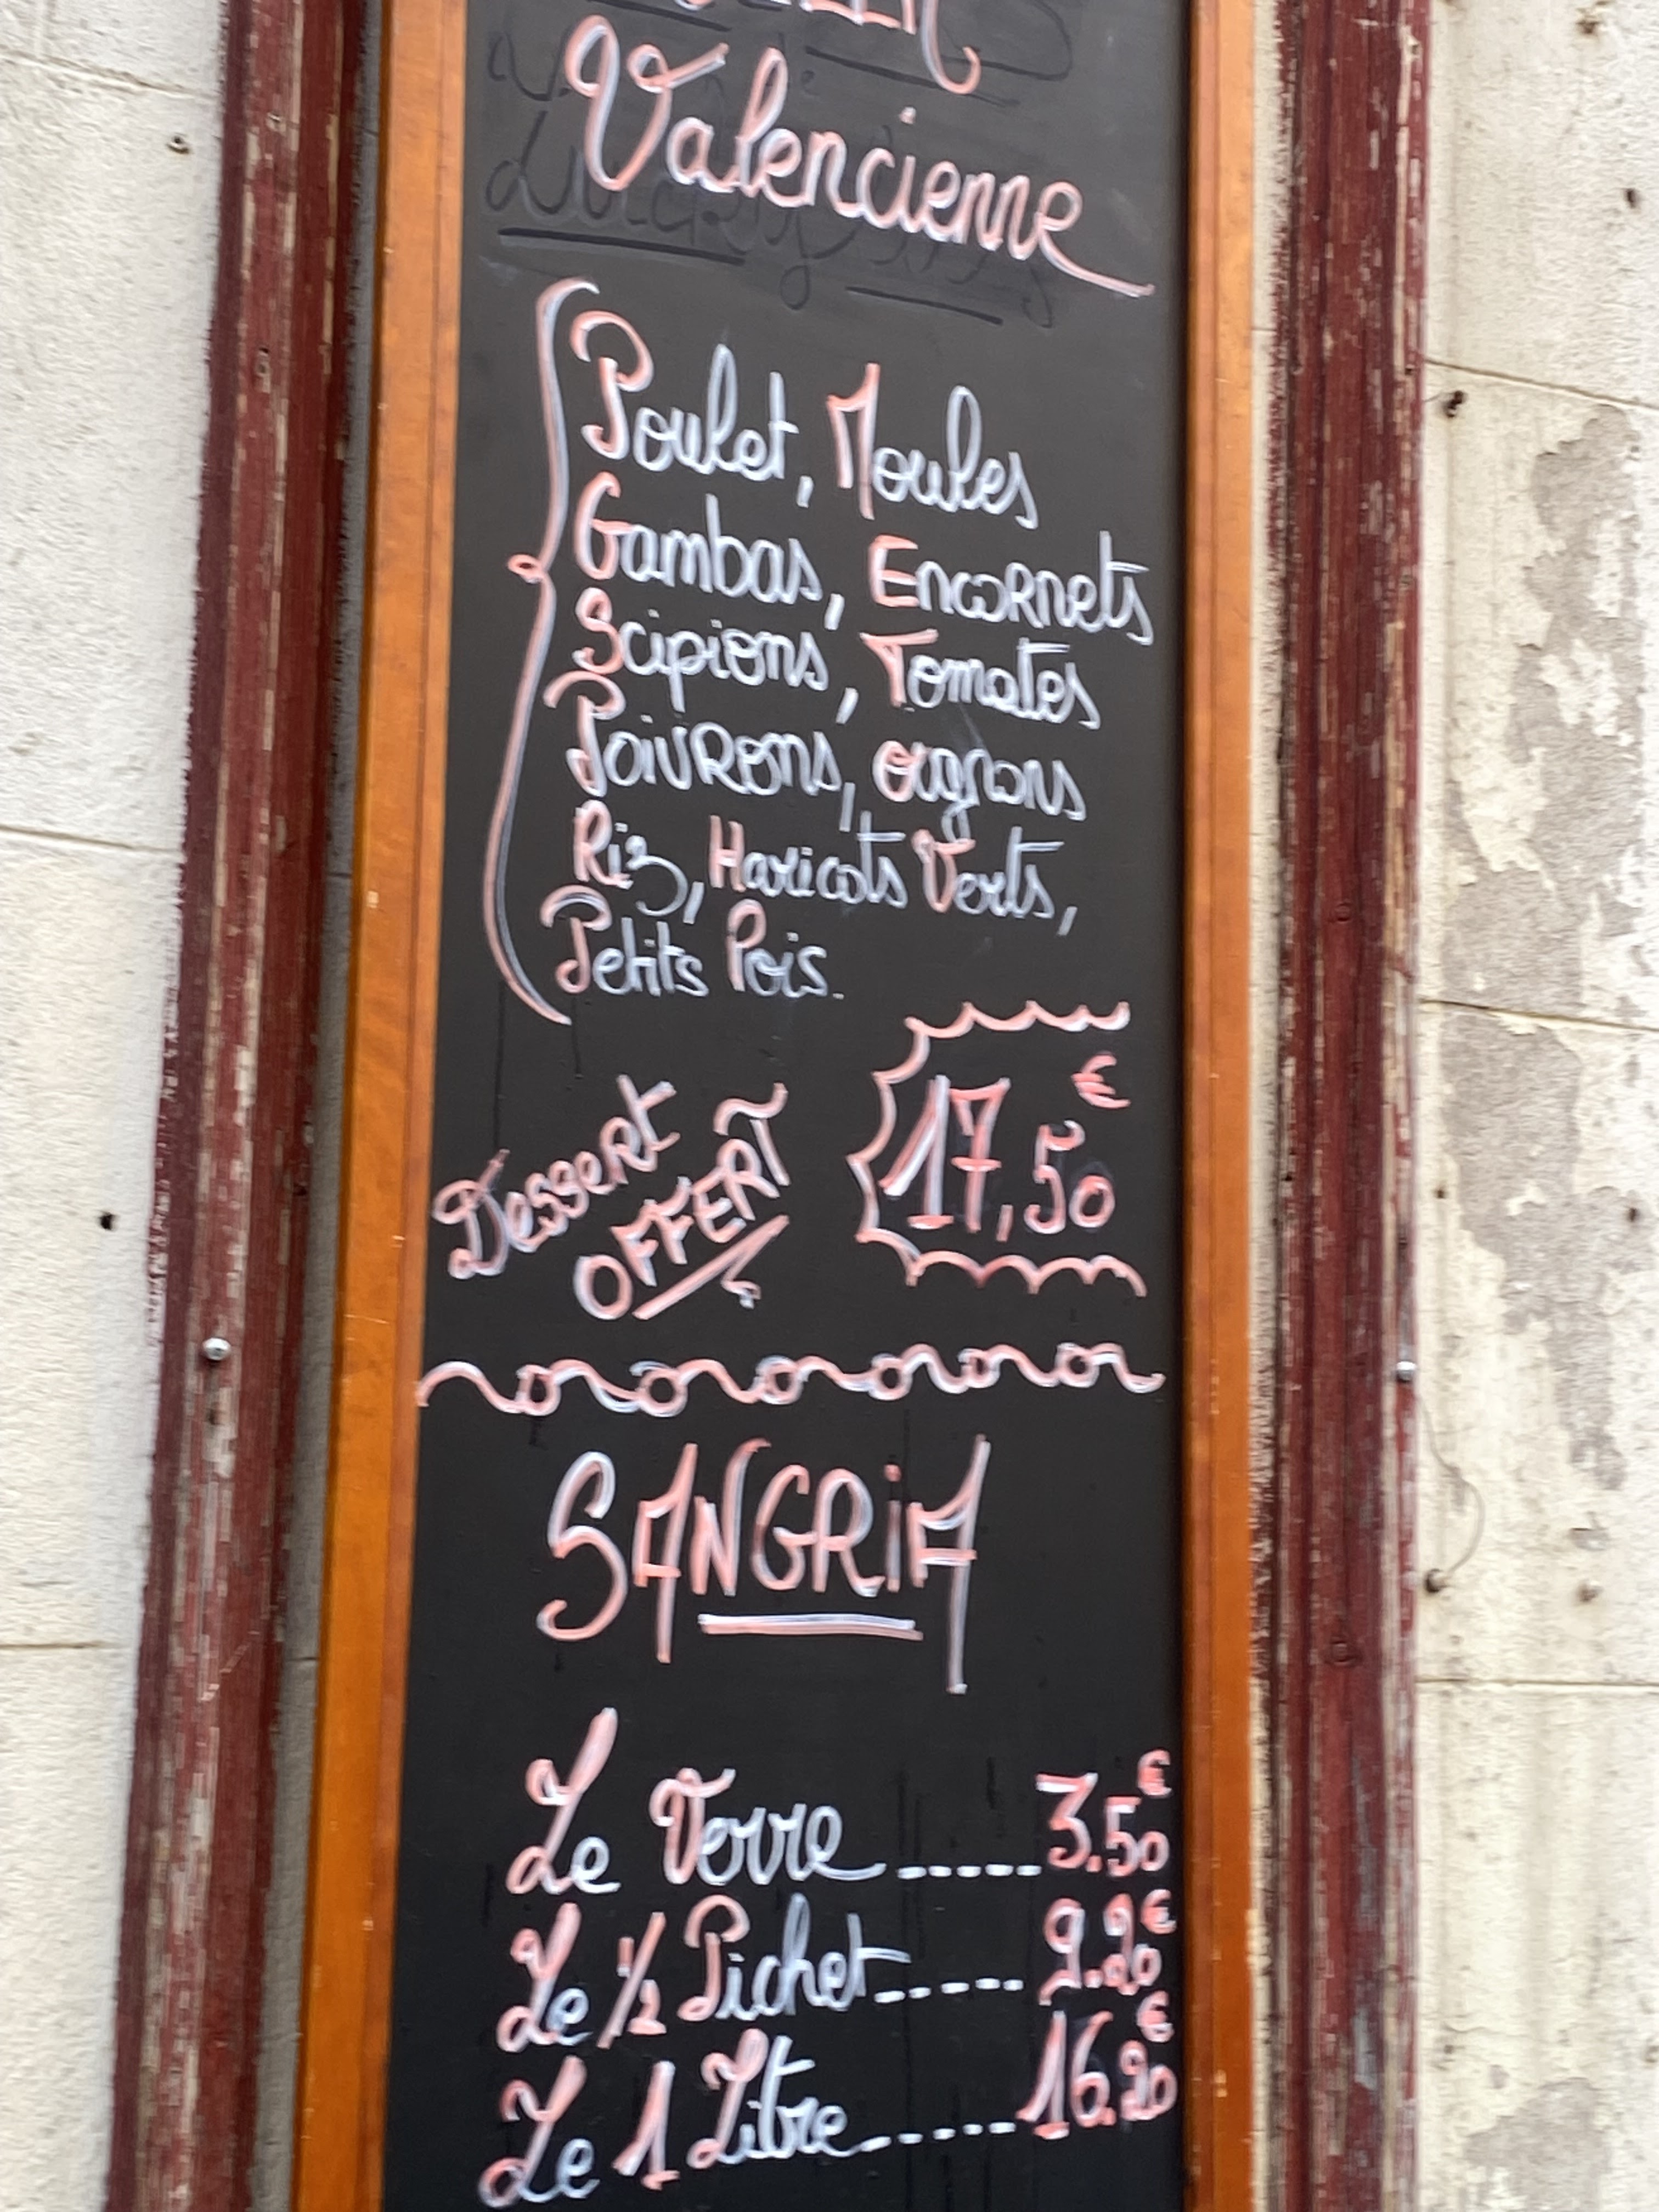 Valencienne
Poulet, Moules
Gambas, Encornets
Scipions, Tomates
Poivrons, oignons
Riz, Haricots Verts,
Petits Pois.
Dessert
OFFERT
17,50 €
SANGRiA
Le Verre ----- 3.50 €
Le 1/2 Pichet ----- 9.20 €
Le 1 Litre ----- 16.20 €